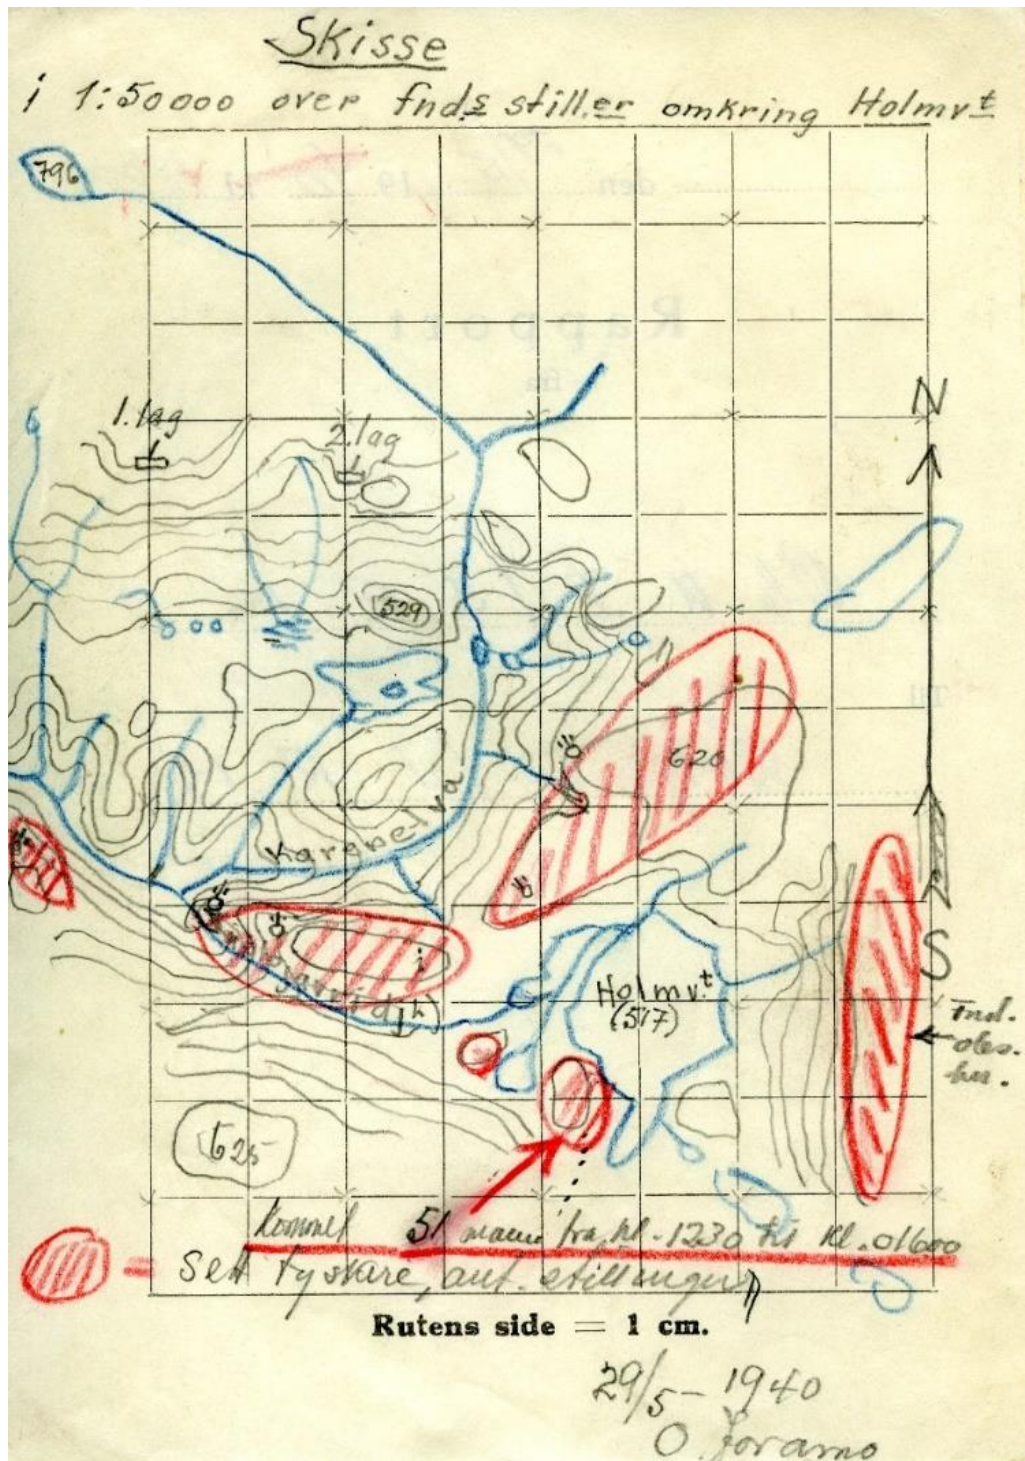 Skisse
i 1:50000 over fnds still.er omkring Holmvt
796
den 19 kl
Rapport
fra
N
1. lag
2. lag
529
Til
620
Kargnelva
Holmv.t
(517)
S
Fnd.
obs.
625
Kommet 51 mann fra kl. 1230 til kl. 01600
= Sett tyskere, ant. stillinger
Rutens side = 1 cm.
29/5 - 1940